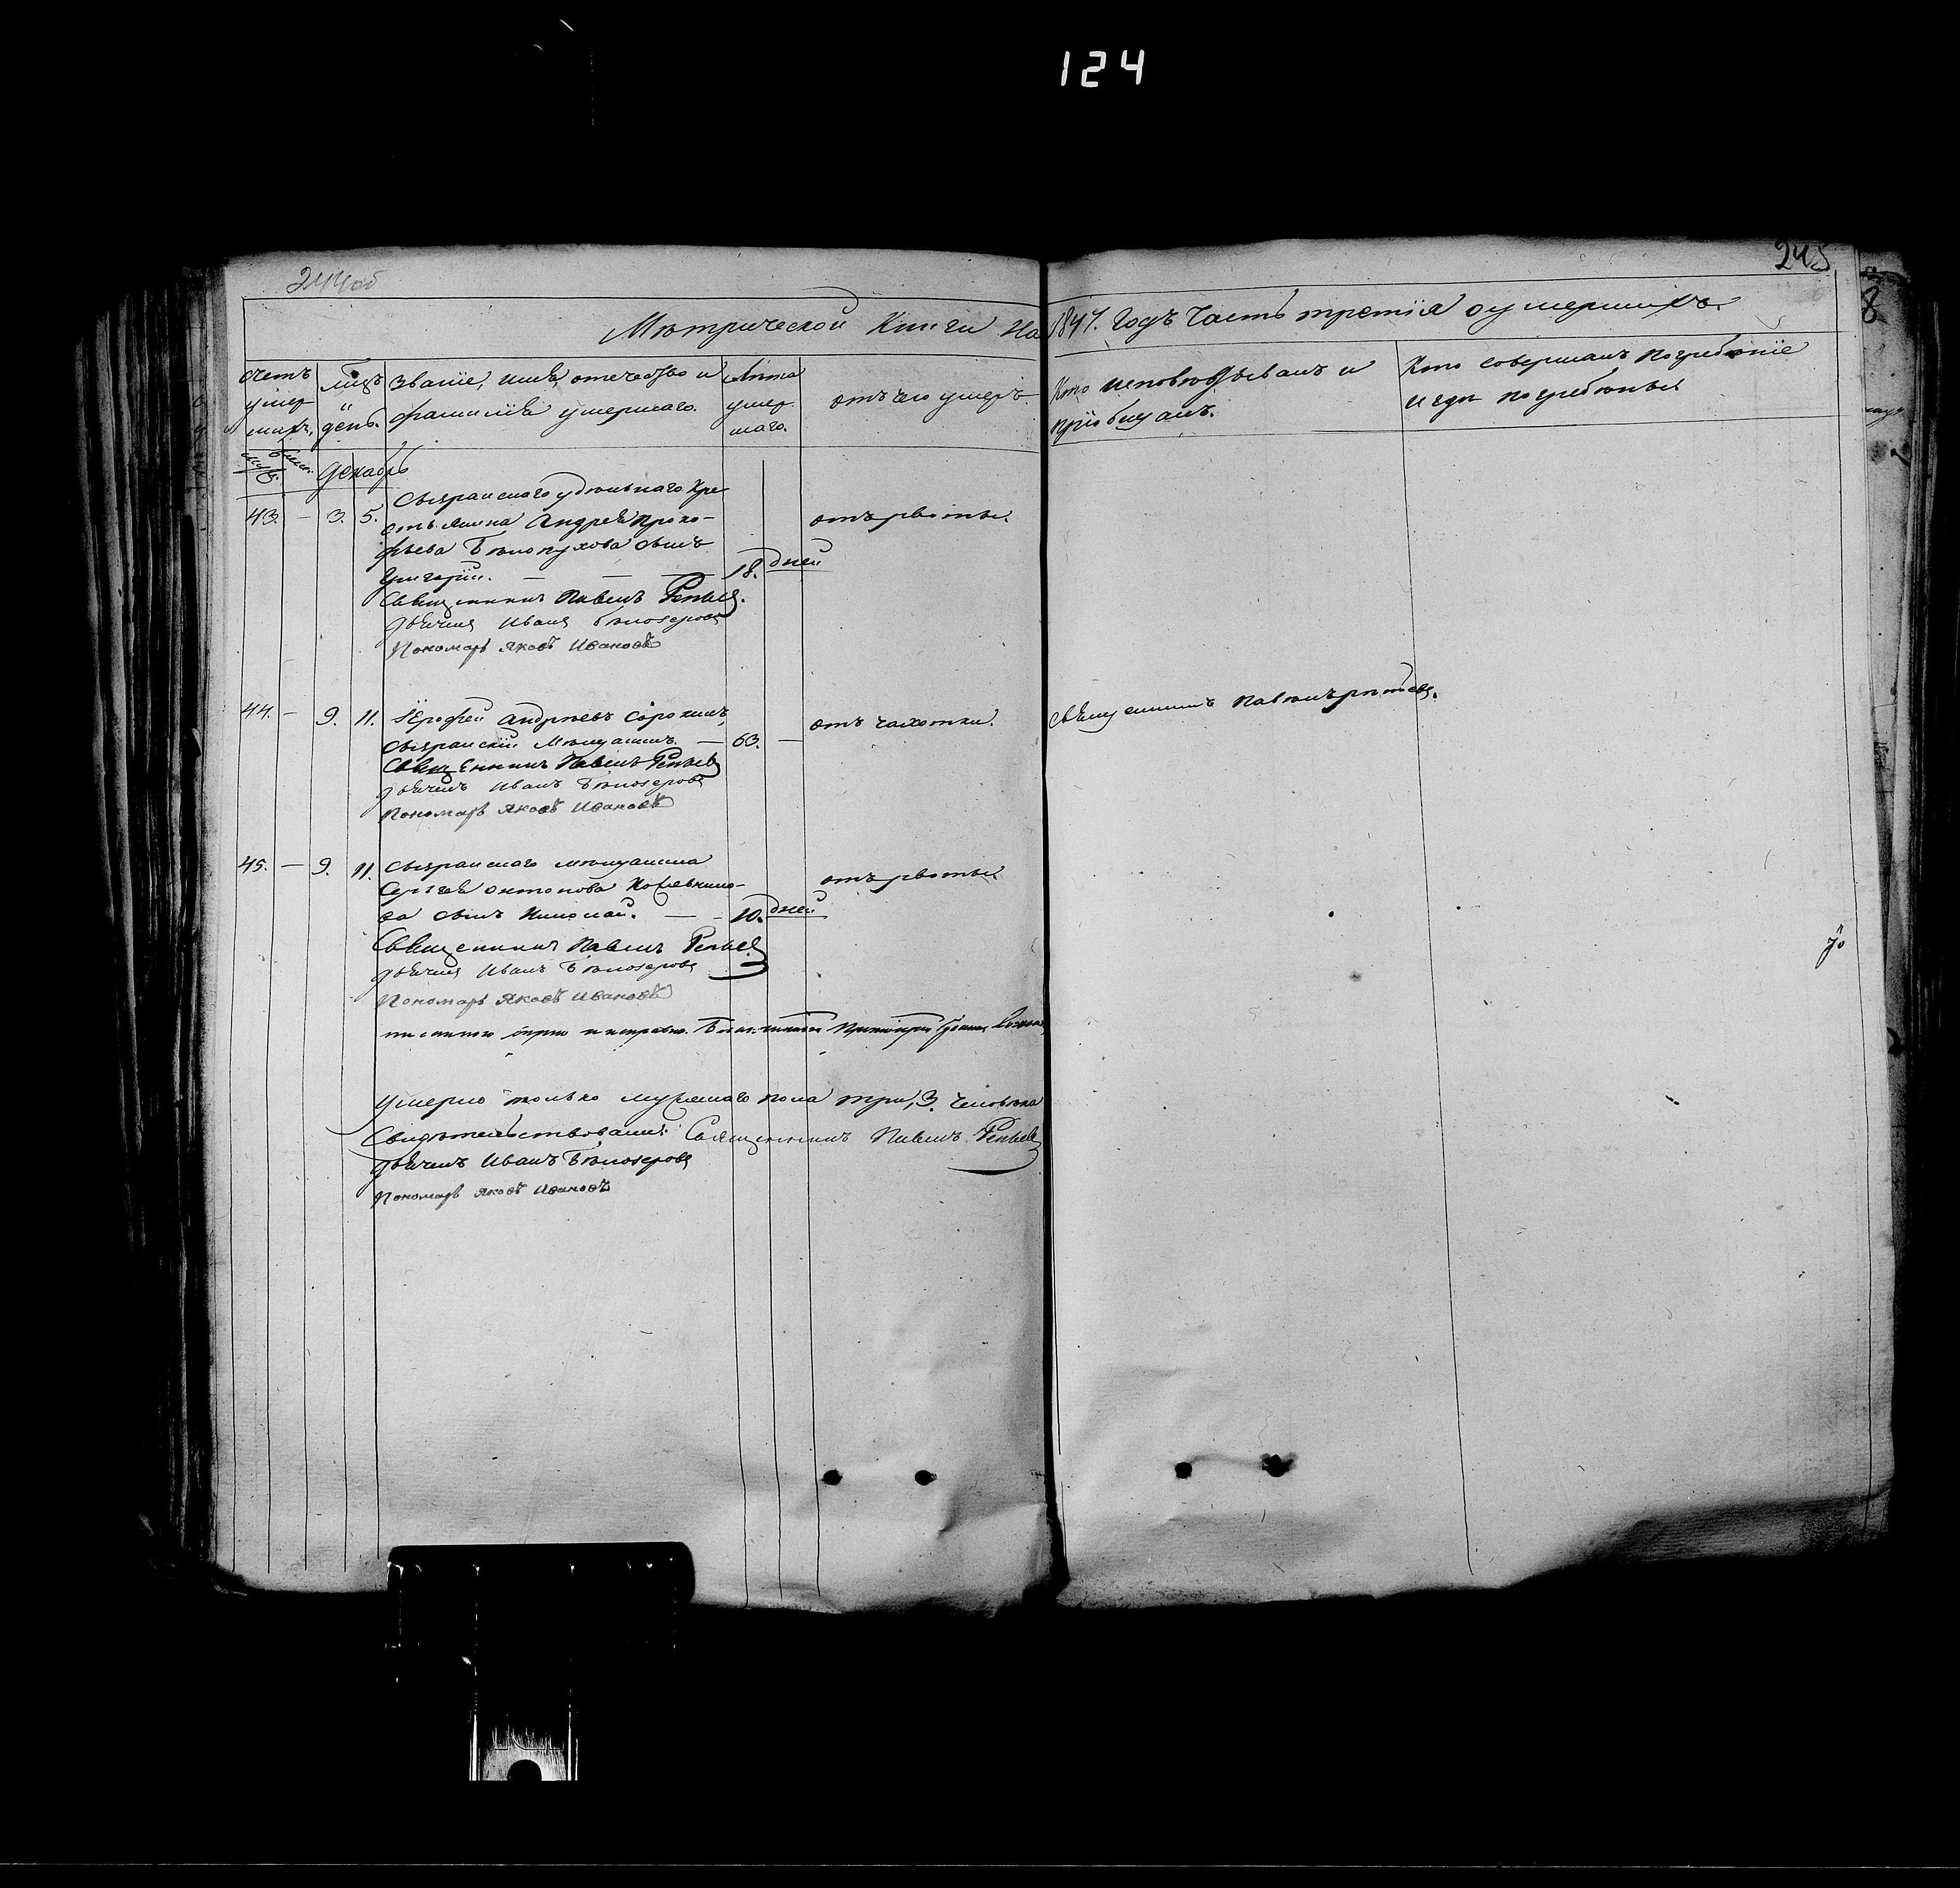 124
244об
245
8
Метрической Книги На 1847. годъ Часть третія о умершихъ.
Счетъ умер шихъ.
Мцъ и день.
Званіе, имя, отечество и фамилія умершаго.
Лета умер шаго.
отъ чего умеръ.
Кто исповѣдывалъ и пріобщалъ.
Кто совершалъ погребеніе и где погребены
Декабрь
43. — 3. 5. Сызранскаго удѣльнаго Кре-
стьянина Андрея Проко- отъ рвоты.
фьева Бѣлопухова сынъ
Григорій. — — — 18. дней
Священникъ Павелъ
Дьячекъ Иванъ Бѣлозеровъ
Пономарь Яковъ Ивановъ
44. — 9. 11. Ерофей Андреевъ Сорокинъ, отъ чахотки. Священникъ Павелъ
Сызранскій Мѣщанинъ. — 63. —
Священникъ Павелъ
Дьячекъ Иванъ Бѣлозеровъ
Пономарь Яковъ Ивановъ
45. — 9. 11. Сызранскаго мѣщанина
Сергѣя Антонова отъ рвоты
ва сынъ Николай. — — 10. дней
Священникъ Павелъ
Дьячекъ Иванъ Бѣлозеровъ
Пономарь Яковъ Ивановъ
Умерло только мужескаго пола три, 3. человѣка
Свидѣтельствовали: Священникъ Павелъ
Дьячекъ Иванъ Бѣлозеровъ
Пономарь Яковъ Ивановъ